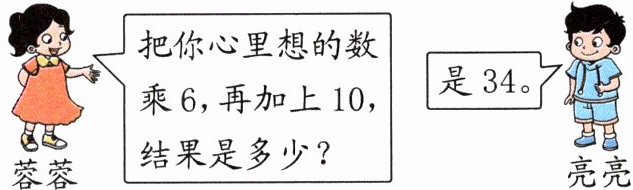 把你心里想的数
乘6,再加上10,
结果是多少?
是34。
蓉蓉
亮亮